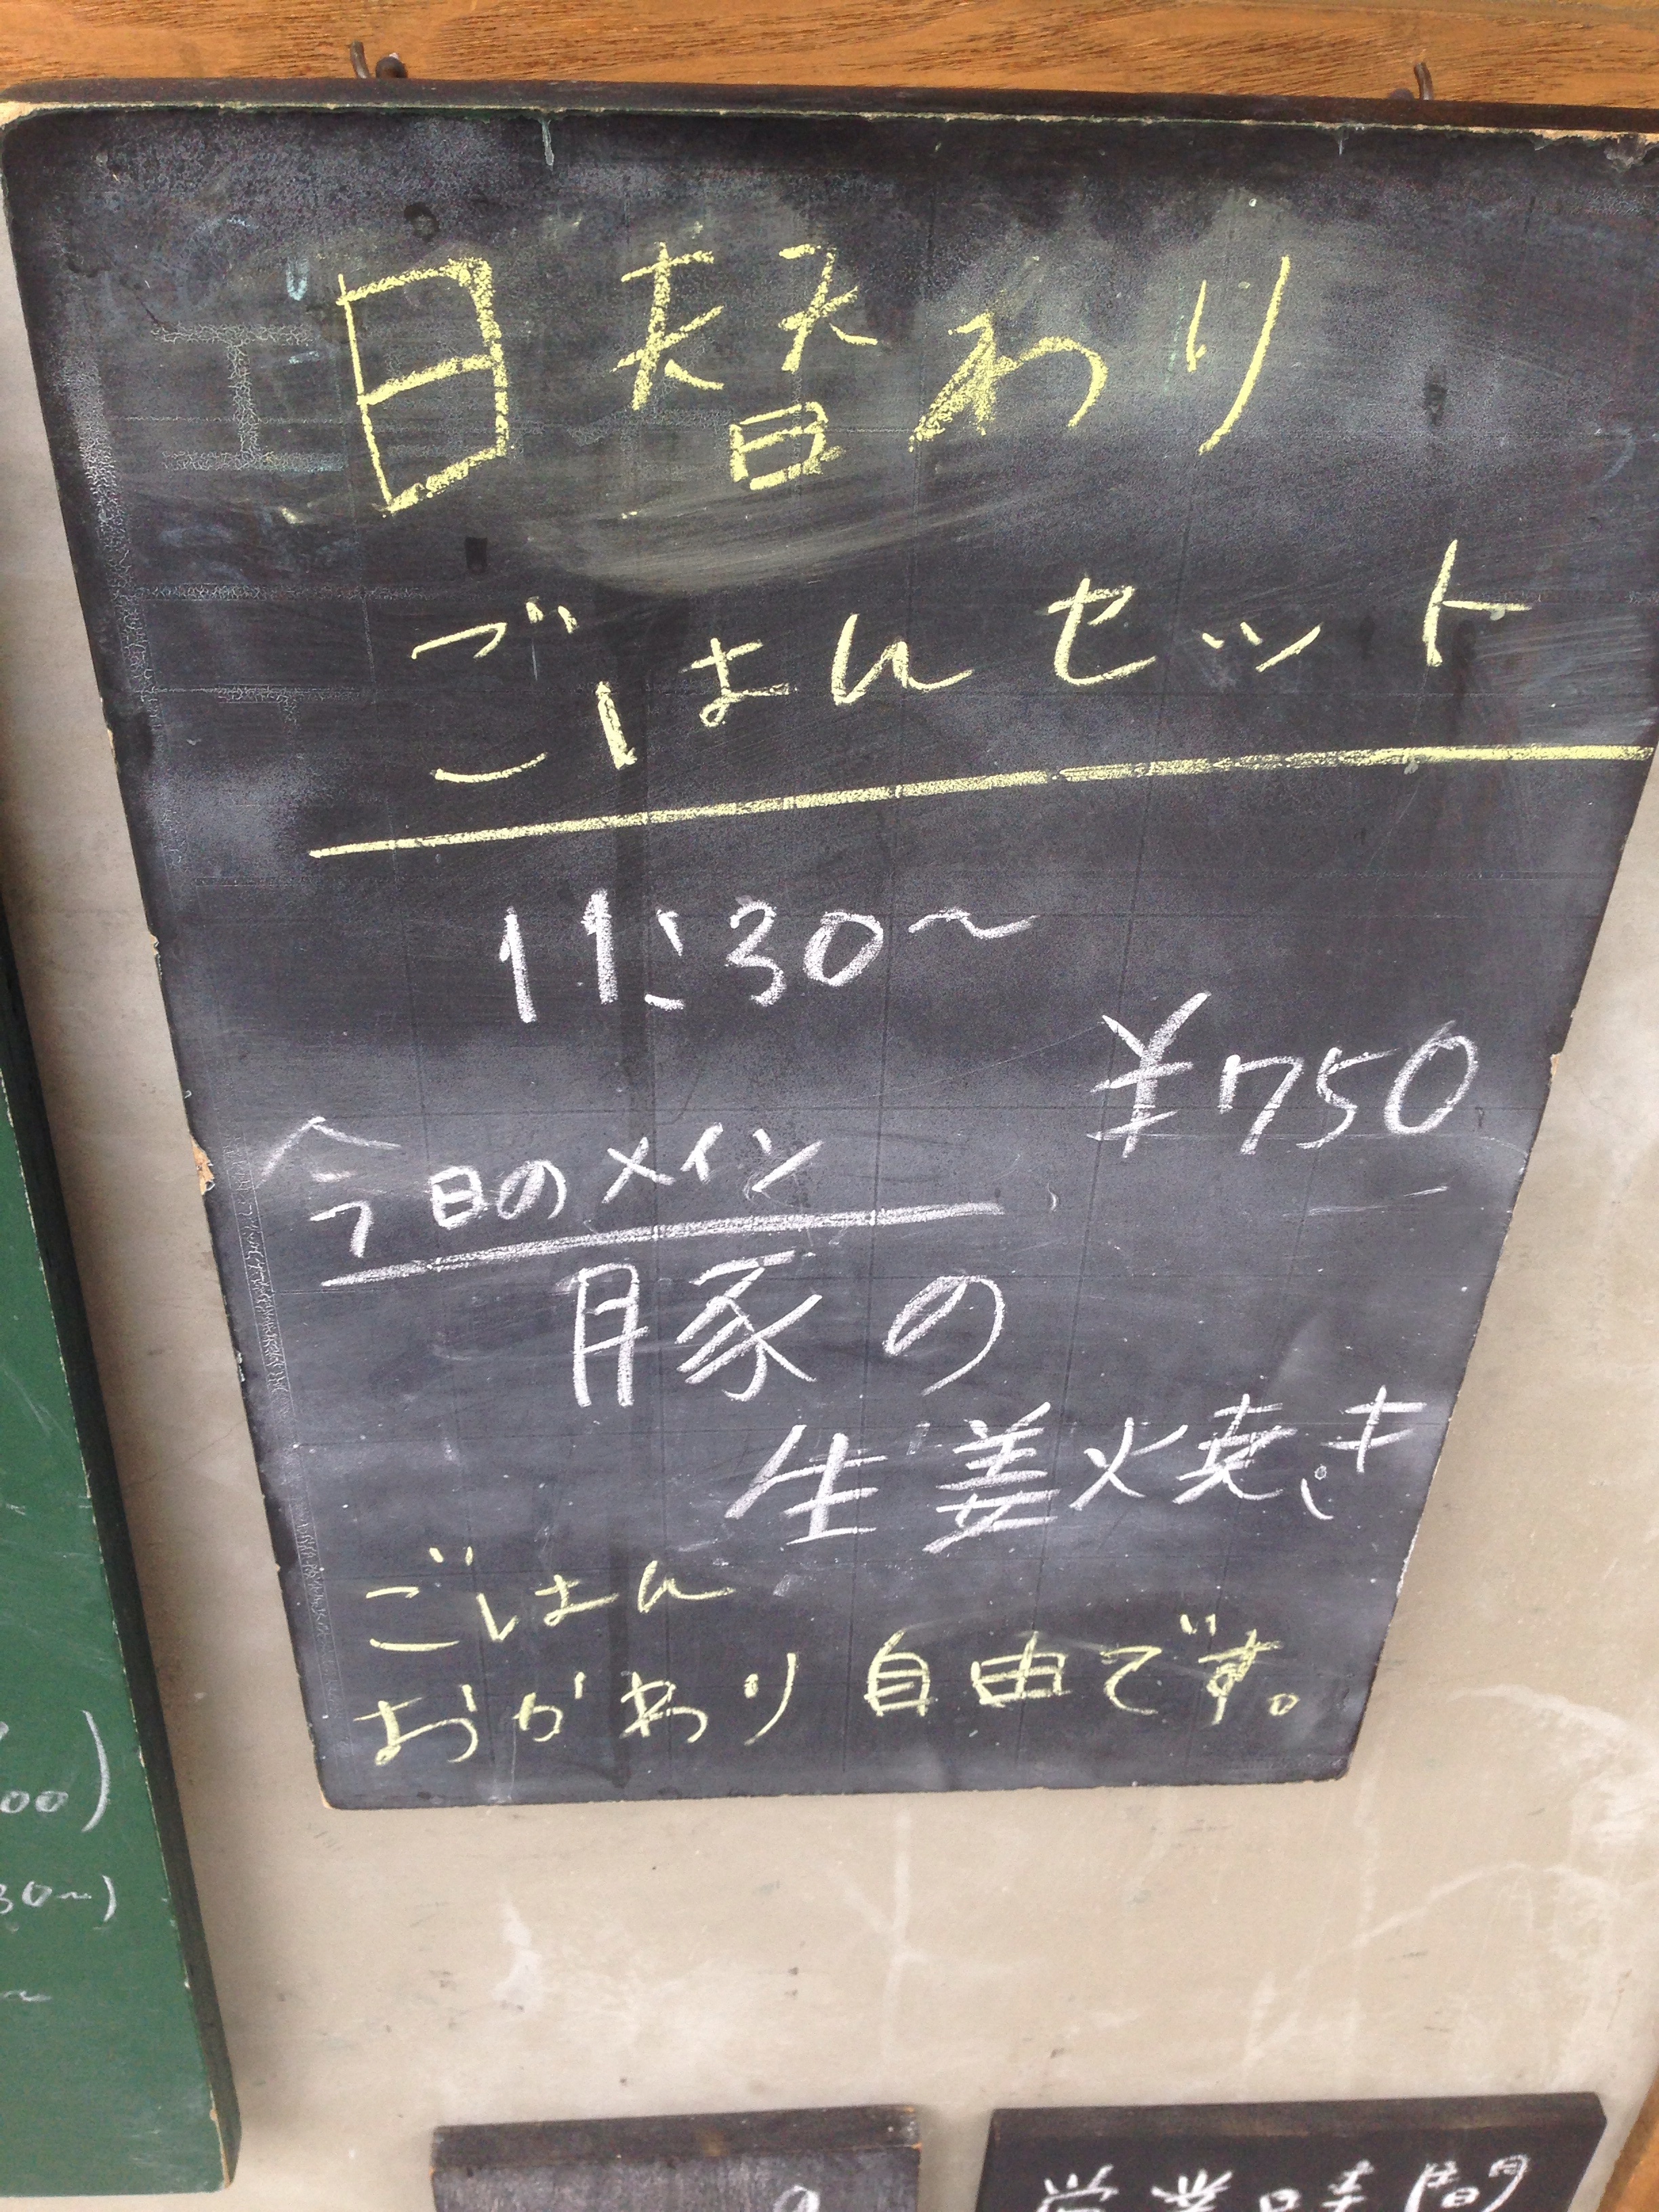 日替わり
ごはんセット
11:30〜
¥750
今日のメイン
豚の
生姜焼き
ごはん
おかわり自由です。
00)
30〜)
営業時間